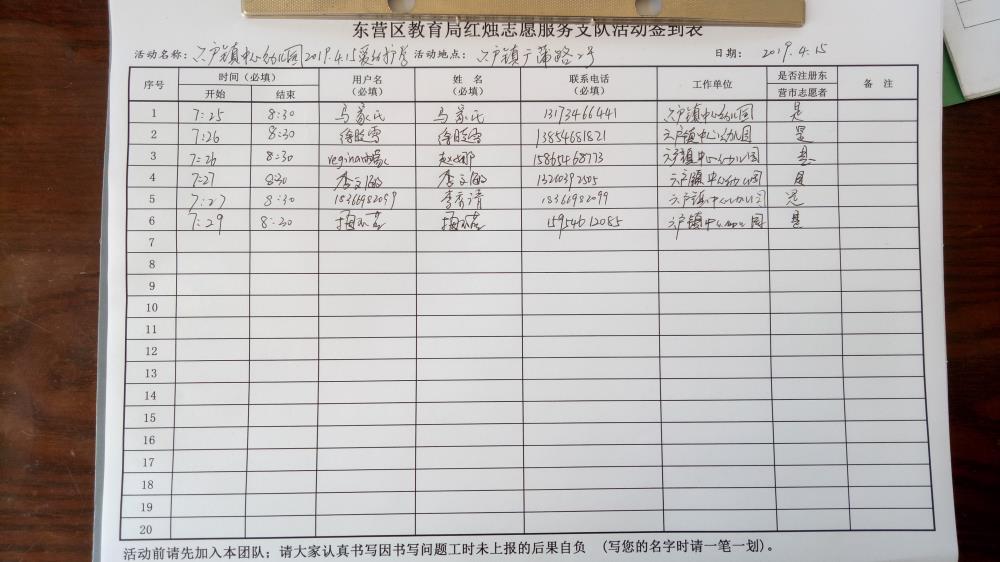 东营区教育局红烛志愿服务支队活动签到表
活动名称: 六户镇中心幼儿园2019.4.15爱幼护学 活动地点: 六户镇广蒲路2号 日期: 2019.4.15
序号 时间(必填) 用户名(必填) 姓名(必填) 联系电话(必填) 工作单位 是否注册东营市志愿者 备注
开始 结束
1 7:25 8:30 13173466441 六户镇中心幼儿园 是
2 7:26 8:30 13854681821 六户镇中心幼儿园 是
3 7:26 8:30 赵娜 15865468773 六户镇中心幼儿园 是
4 7:27 8:30 李文 李文 13210392505 六户镇中心幼儿园 是
5 7:27 8:30 18366982099 李秀清 18366982099 六户镇中心幼儿园 是
6 7:29 8:30 15954612085 六户镇中心幼儿园 是
7
8
9
10
11
12
13
14
15
16
17
18
19
20
活动前请先加入本团队;请大家认真书写因书写问题工时未上报的后果自负 (写您的名字时请一笔一划)。